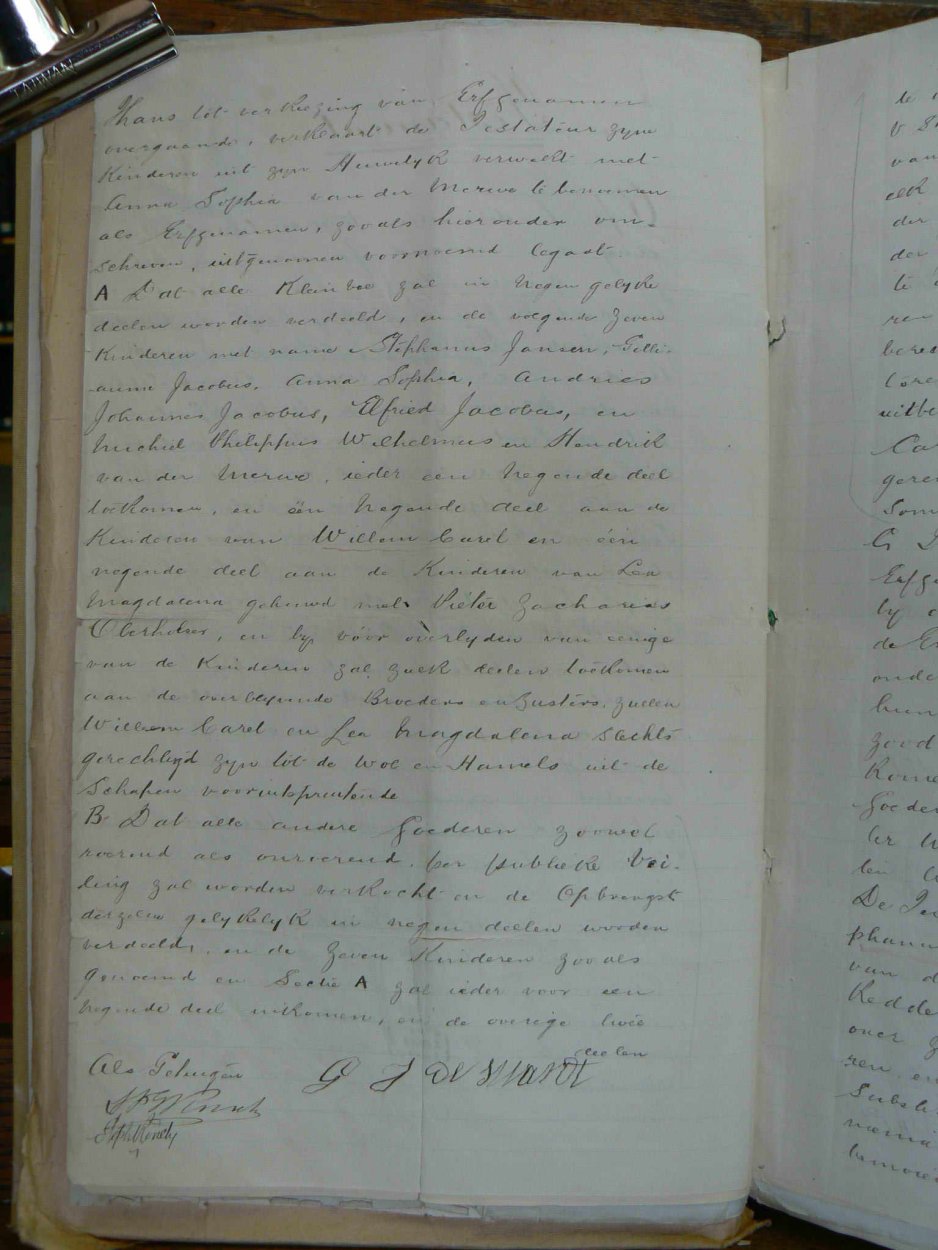 TAIWAN
Thans tot verkiezing van Erfgenamen
overgaande, verklaart de Testateur zyne
Kinderen uit zyn Huwelyk verwekt met
Anna Sophia van der Merwe te benoemen
als Erfgenamen, zooals hieronder om-
schreven, uitgenomen voornoemd legaat
A Dat alle Klein vee zal in negen gelyke
deelen worden verdeeld, en de volgende zeven
Kinderen met name Stephanus Jansen, Gilli-
aume Jacobus, Anna Sophia, Andries
Johannes Jacobus, Elfried Jacobus, en
Michiel Philippus Wilhelmus en Hendrik
van der Merwe, ieder een negende deel
toekomen, en één negende deel aan de
Kinderen van Willem Carel en één
negende deel aan de Kinderen van Lea
Magdalena gehuwd met Pieter Zacharias
Oberholzer, en by vóór overlyden van eenige
van de Kinderen zal zulk deelen toekomen
aan de overblyvende Broeders en Zusters, zullen
Willem Carel en Lea Magdalena slechts
gerechtigd zyn tot de Wol en Hamels uit de
Schapen vooruitspruitende
B Dat alle andere Goederen zoowel
roerend als onroerend, per publieke Vei-
ling zal worden verkocht en de Opbrengst
derzelve gelykelyk in negen deelen worden
verdeeld, en de zeven Kinderen zooals
genoemd en Sectie A zal ieder voor een
negende deel uitkomen, en de overige twee
deelen
Als Getuigen
G J De Wardt
te
van
elk
der
der
te
uitbe
Som
Erfge
by
de Er
onde
hun
zood
Kome
Goeder
De Te
phanu
van d
Redde
over z
ren en
Substi